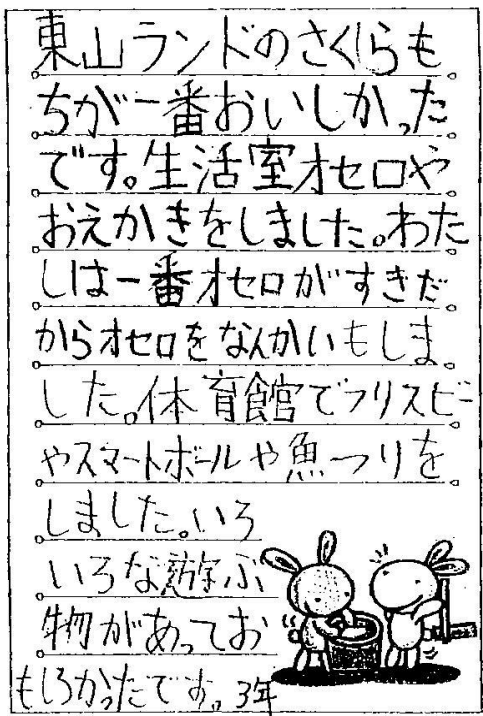 東山ランドのさくらも
ちが一番おいしかった
です。生活室オセロや
おえかきをしました。わた
しは一番オセロがすきだ
からオセロをなんかいもしま
した。体育館でフリスビー
やスマートボールや魚つりを
しました。いろ
いろな遊ぶ
物があってお
もしろかったです。3年